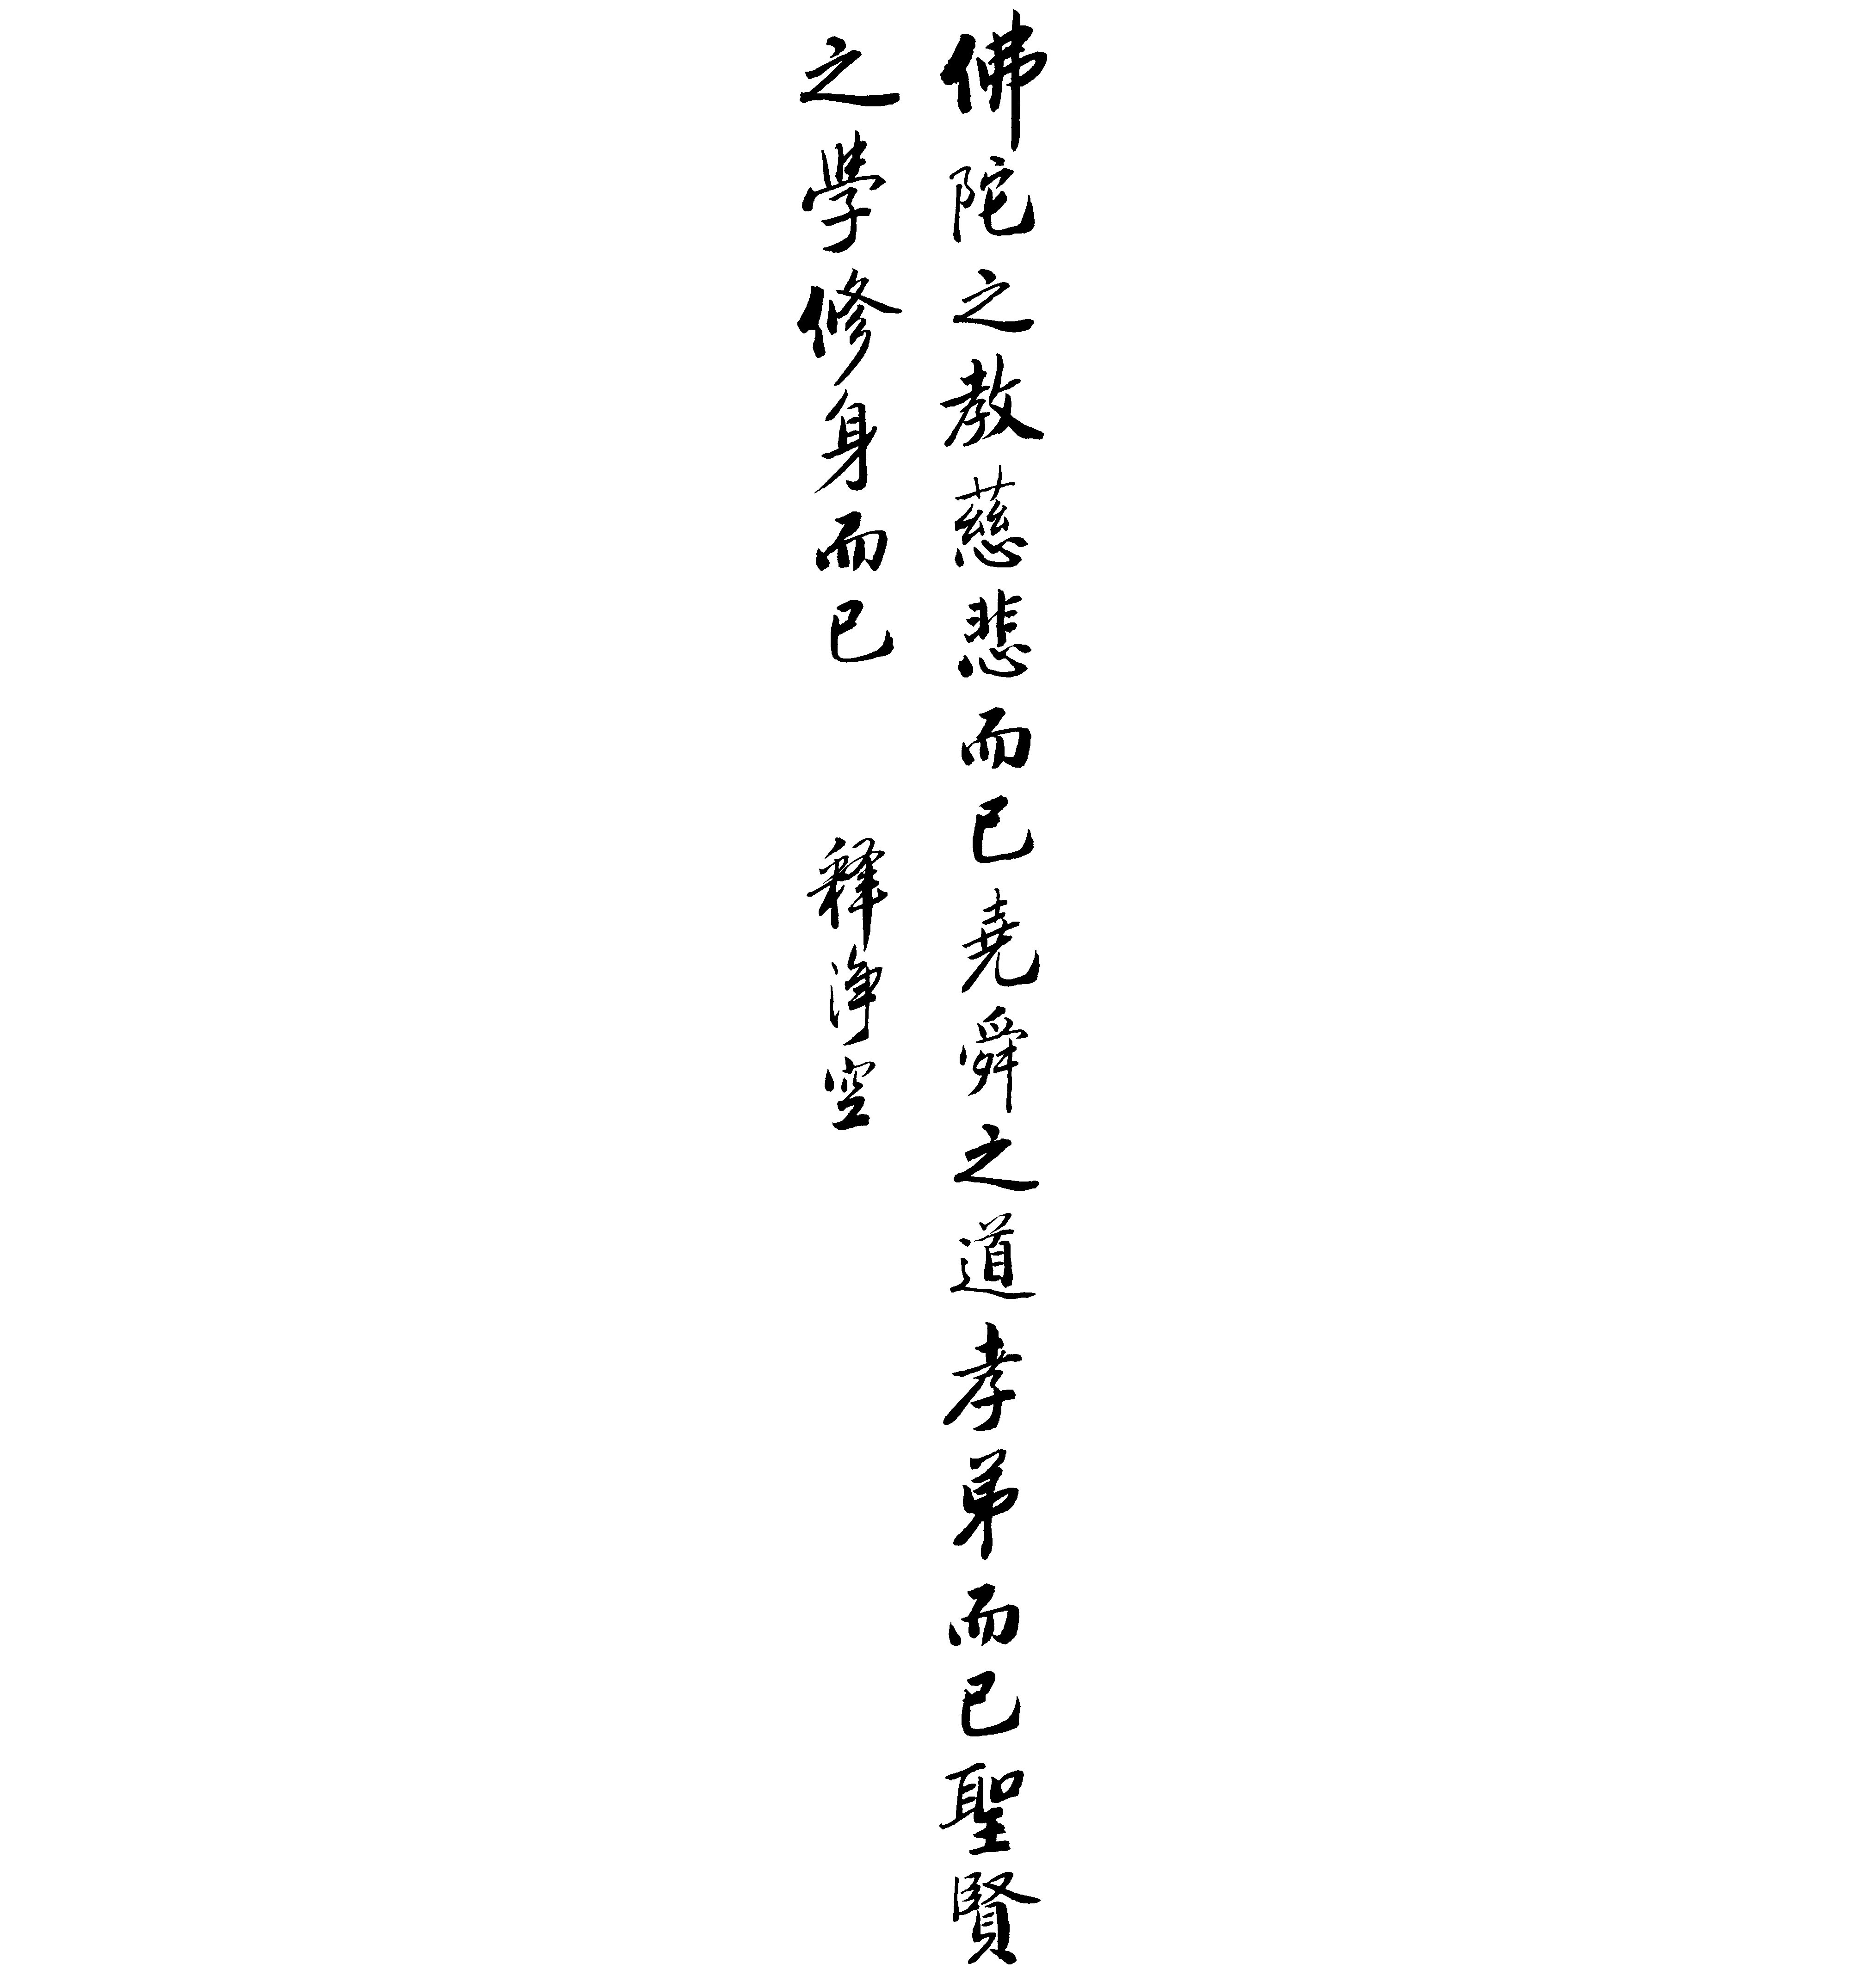 佛陀之教慈悲而已堯舜之道孝弟而已聖賢
之學修身而已　釋淨空